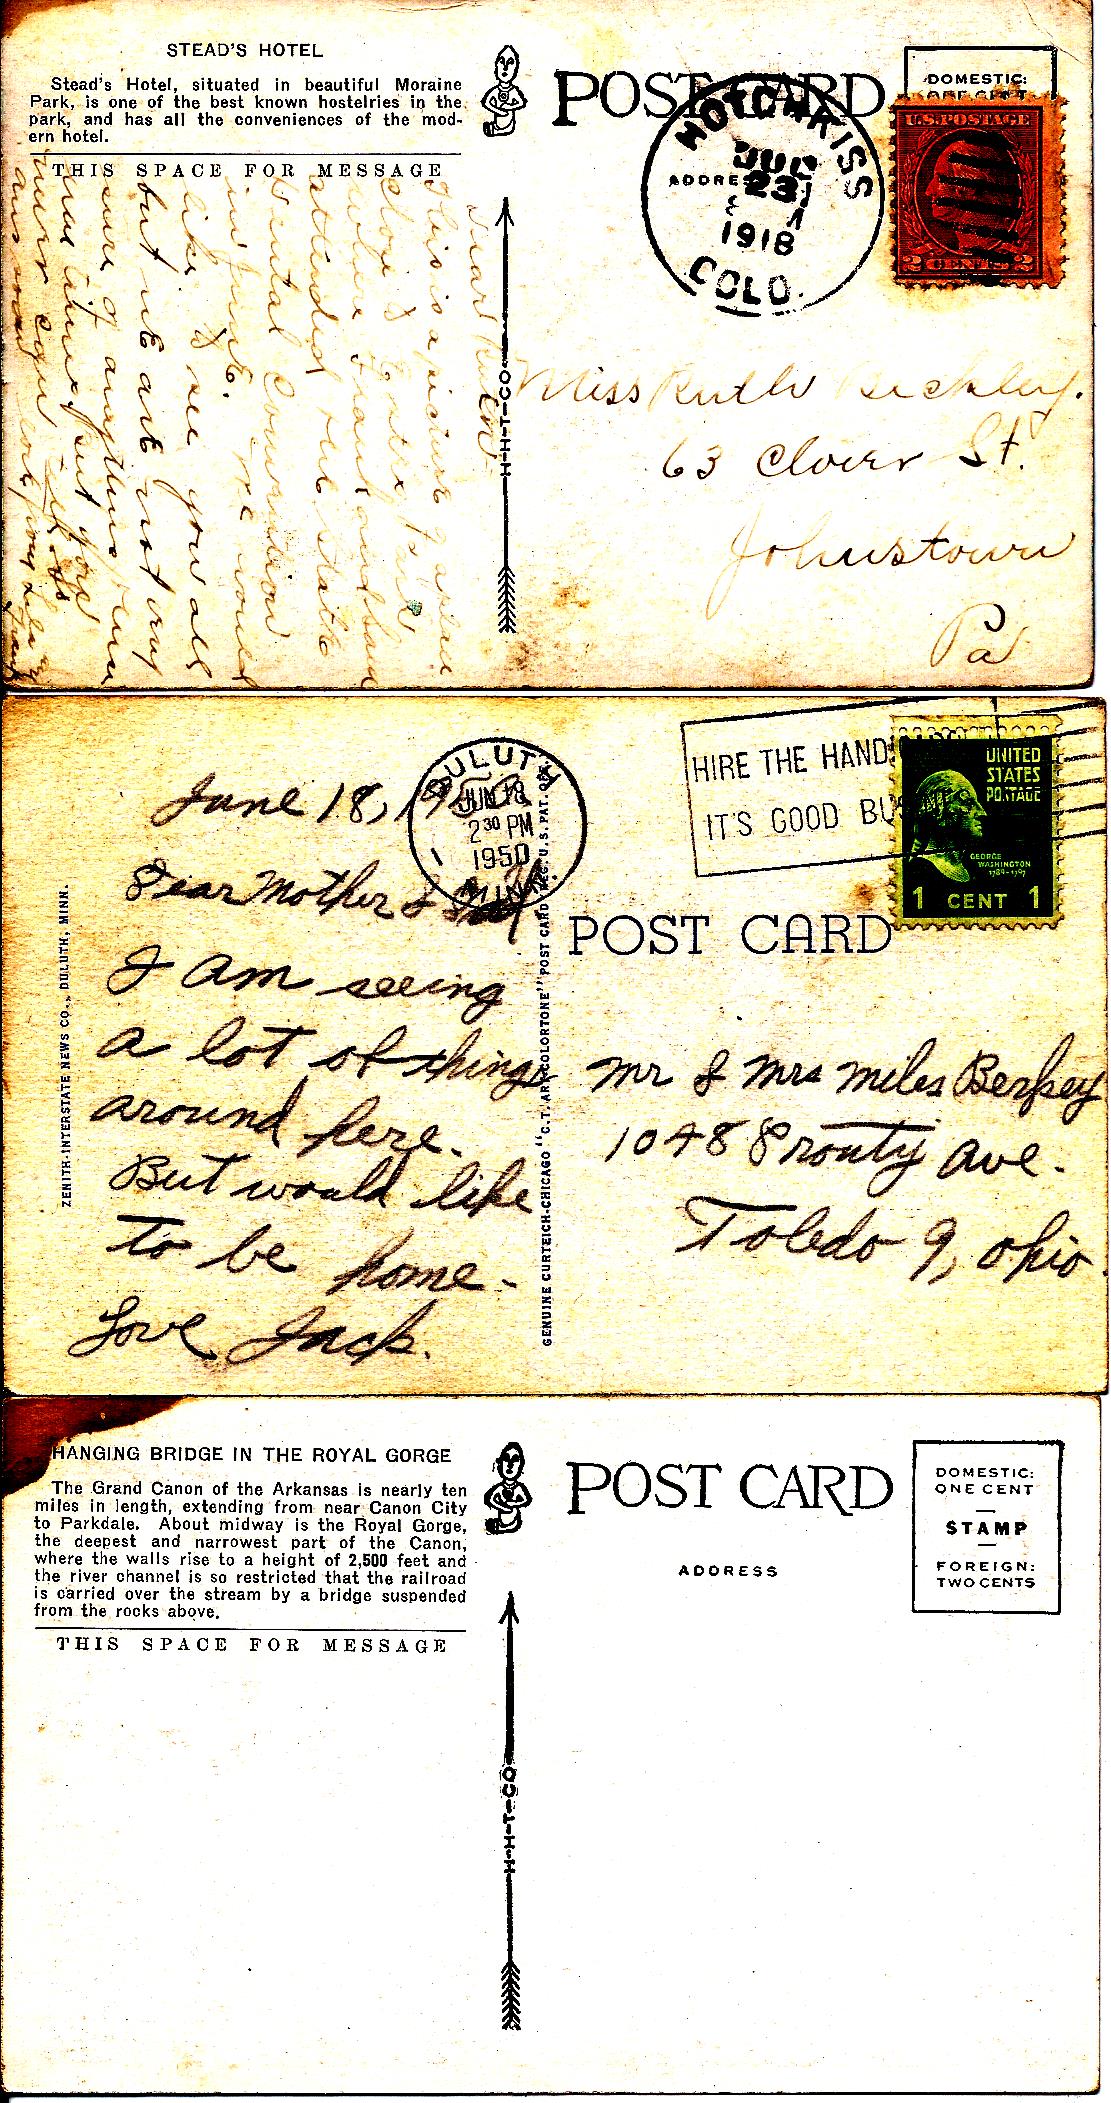 STEAD'S HOTEL
Stead's Hotel, situated in beautiful Moraine
Park, is one of the best known hostelries in the
park, and has all the conveniences of the mod-
ern hotel.
THIS SPACE FOR MESSAGE
POST CARD
ADDRE
DOMESTIC:
ONE CENT
U.S. POSTAGE
2 CENTS 2
HOTCHKISS
23
1918
COLO.
H-H-T-CO
Dear
This is a picture
Park
attended the state
Dental Convention
we would
like to see you all
but we are not any
sure of anything
Miss Ruth
63 Clover St.
Johnstown
Pa
June 18, 19
DULUTH
JUN 18
2 30 PM
1950
MINN.
HIRE THE HAND
IT'S GOOD BUS
UNITED
STATES
POSTAGE
GEORGE
WASHINGTON
1789-1797
1 CENT 1
Dear Mother &
I am seeing
a lot of things
around here.
But would like
to be home.
Love Jack.
POST CARD
Mr & Mrs Miles Berkey
1048 Prouty Ave.
Toledo 9, Ohio.
ZENITH-INTERSTATE NEWS CO., DULUTH, MINN.
GENUINE CURTEICH-CHICAGO "C.T. ART-COLORTONE" POST CARD REG. U.S. PAT. OFF.
HANGING BRIDGE IN THE ROYAL GORGE
The Grand Canon of the Arkansas is nearly ten
miles in length, extending from near Canon City
to Parkdale. About midway is the Royal Gorge,
the deepest and narrowest part of the Canon,
where the walls rise to a height of 2,500 feet and
the river channel is so restricted that the railroad
is carried over the stream by a bridge suspended
from the rocks above.
THIS SPACE FOR MESSAGE
POST CARD
ADDRESS
DOMESTIC:
ONE CENT
STAMP
FOREIGN:
TWO CENTS
H-H-T-CO